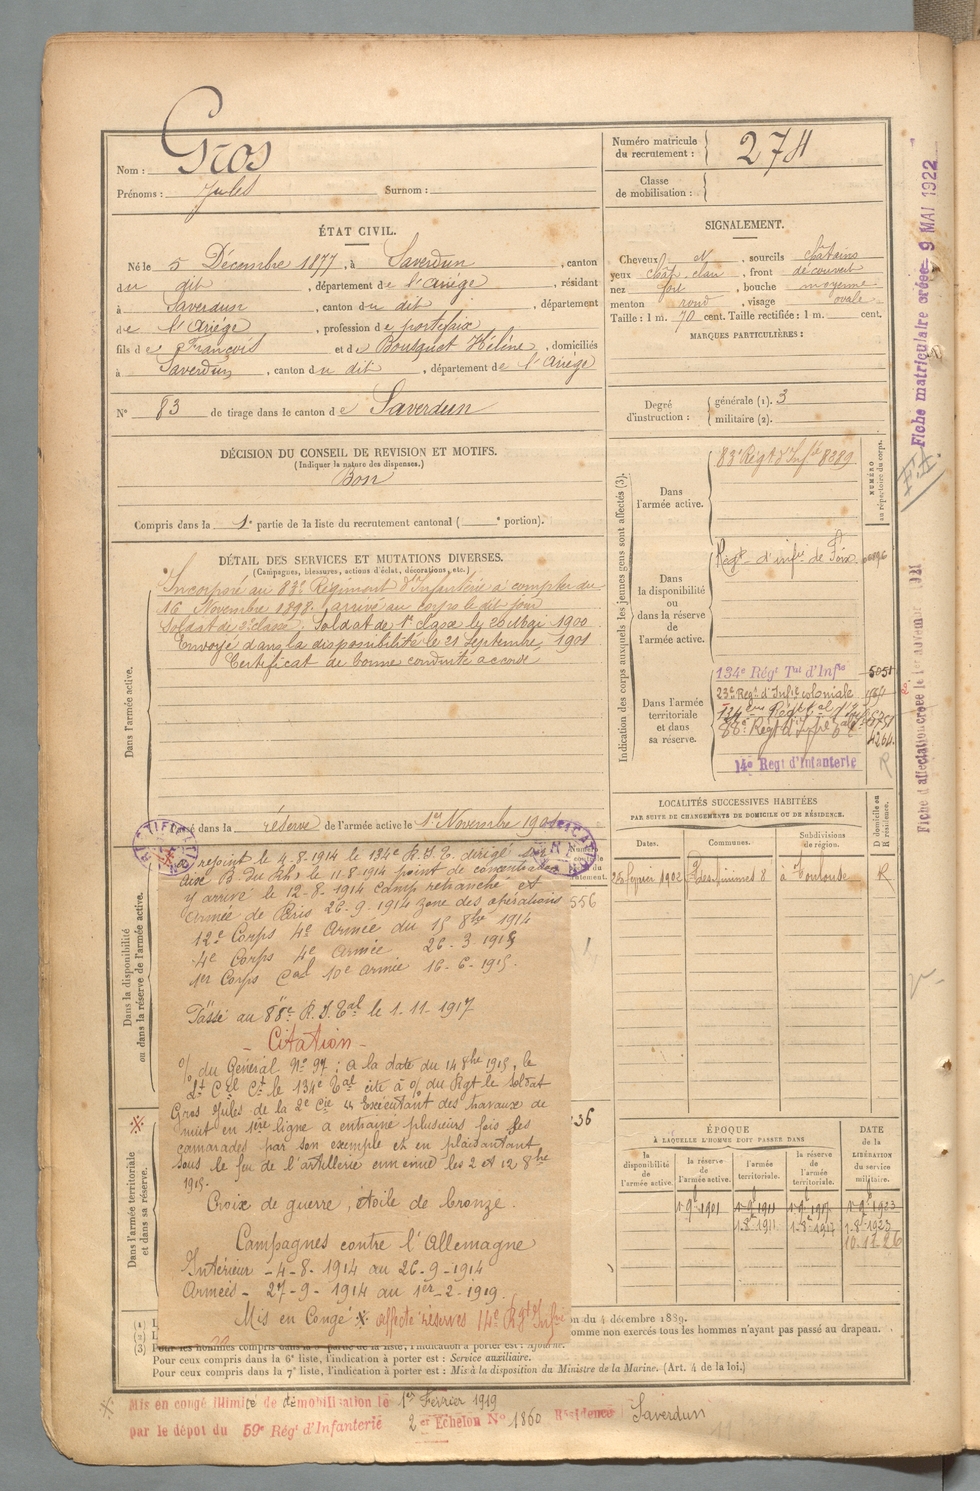 Nom : Gros
Prénoms : Jules Surnom :
Numéro matricule du recrutement : 274
Classe de mobilisation :
ÉTAT CIVIL.
Né le 5 Décembre 1877, à Saverdun, canton
du dit, département de l'Ariège, résidant
à Saverdun, canton du dit, département
de l'Ariège, profession de portefaix
fils de François et de Bousquet Hélène, domiciliés
à Saverdun, canton du dit, département de l'Ariège
N° 83 de tirage dans le canton de Saverdun
SIGNALEMENT.
Cheveux N, sourcils chatains
yeux chat. clair, front découvert
nez fort, bouche moyenne
menton rond, visage ovale
Taille : 1 m. 70 cent. Taille rectifiée : 1 m. cent.
MARQUES PARTICULIÈRES :
Degré d'instruction : générale (1). 3
militaire (2).
DÉCISION DU CONSEIL DE REVISION ET MOTIFS.
(Indiquer la nature des dispenses.)
Bon
Compris dans la 1e partie de la liste du recrutement cantonal ( e portion).
DÉTAIL DES SERVICES ET MUTATIONS DIVERSES.
(Campagnes, blessures, actions d'éclat, décorations, etc.)
Dans l'armée active.
Incorporé au 83e Régiment d'Infanterie à compter du
16 Novembre 1898. arrivé au corps le dit jour
Soldat de 2e classe. Soldat de 1e classe le 20 Mai 1900
Envoyé dans la disponibilité le 21 Septembre 1901
Certificat de bonne conduite accordé
é dans la réserve de l'armée active le 1er Novembre 1901
Dans la disponibilité ou dans la réserve de l'armée active.
Dans l'armée territoriale et dans sa réserve.
RECTIFICATION
A rejoint le 4.8.1914 le 134e R.I.T. dirigé sur
aux B. du Rh. le 11.8.1914 point de concentration
y arrivé le 12-8-1914 camp retranché et
Armée de Paris 26-9-1914 zone des opérations
12e Corps 4e Armée du 15 8bre 1914
4e Corps 4e Armée 26-3-1915
1er Corps Cal 10e armée 16-6-1915.
Passé au 88e R.I.Tal le 1.11.1917
- Citation -
O/ du Général N° 97 : a la date du 14 8bre 1915, le
Lt Cel Ct le 134e Tal cite à O/ du Rgt le soldat
Gros Jules de la 2e Cie "Exécutant des travaux de
nuit en 1ère ligne a entrainé plusieurs fois ses
camarades par son exemple et en plaisantant
sous le feu de l'artillerie ennemie les 2 et 12 8bre
1915.
Croix de guerre, étoile de bronze.
Campagnes contre l'Allemagne
Intérieur - 4-8-1914 au 26-9-1914
Armées - 27-9-1914 au 1er-2-1919.
Mis en Congé ※ affecté réserves 14e Rgt Infrie
556
36
Indication des corps auxquels les jeunes gens sont affectés (3).
NUMÉRO au répertoire du corps.
Dans l'armée active.
83e Régt d'Infie 8389
Dans la disponibilité ou dans la réserve de l'armée active.
Régt d'infie de Foix
Dans l'armée territoriale et dans sa réserve.
134e Régt Tal d'Infie 5051
23e Regt d'Infie coloniale
14e Regt d'Infanterie R
LOCALITÉS SUCCESSIVES HABITÉES
PAR SUITE DE CHANGEMENTS DE DOMICILE OU DE RÉSIDENCE.
Dates. Communes. Subdivisions de région. D domicile ou R résidence.
25 février 1902 R. des minimes 8 à Toulouse R
ÉPOQUE
À LAQUELLE L'HOMME DOIT PASSER DANS
DATE de la LIBÉRATION du service militaire.
la disponibilité de l'armée active. la réserve de l'armée active. l'armée territoriale. la réserve de l'armée territoriale.
1er 9bre 1901 1er 9bre 1911 1er 9bre 1917 1er 9bre 1923
1-8e 1911 1-8e 1917 1-8e 1923
10.11.26
on du 4 décembre 1889.
omme non exercés tous les hommes n'ayant pas passé au drapeau.
(3) Pour les hommes compris dans la 5e partie de la liste, l'indication à porter est : Ajourné.
Pour ceux compris dans la 6e liste, l'indication à porter est : Service auxiliaire.
Pour ceux compris dans la 7e liste, l'indication à porter est : Mis à la disposition du Ministre de la Marine. (Art. 4 de la loi.)
※ Mis en congé illimité de démobilisation le 1er Février 1919
par le dépôt du 59e Régt d'Infanterie 2er Échelon N° 1860 Résidence Saverdun
Fiche matriculaire créée 9 MAI 1922
Fiche d'affectation créée le 1er novembre 1921